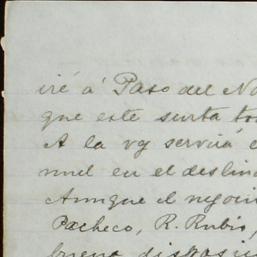 iré á Paso del No
que este surta to
A la vez servirá e
nuel en el deslin
Aunque el negoci
Pacheco, R. Rubio,
buena disposici